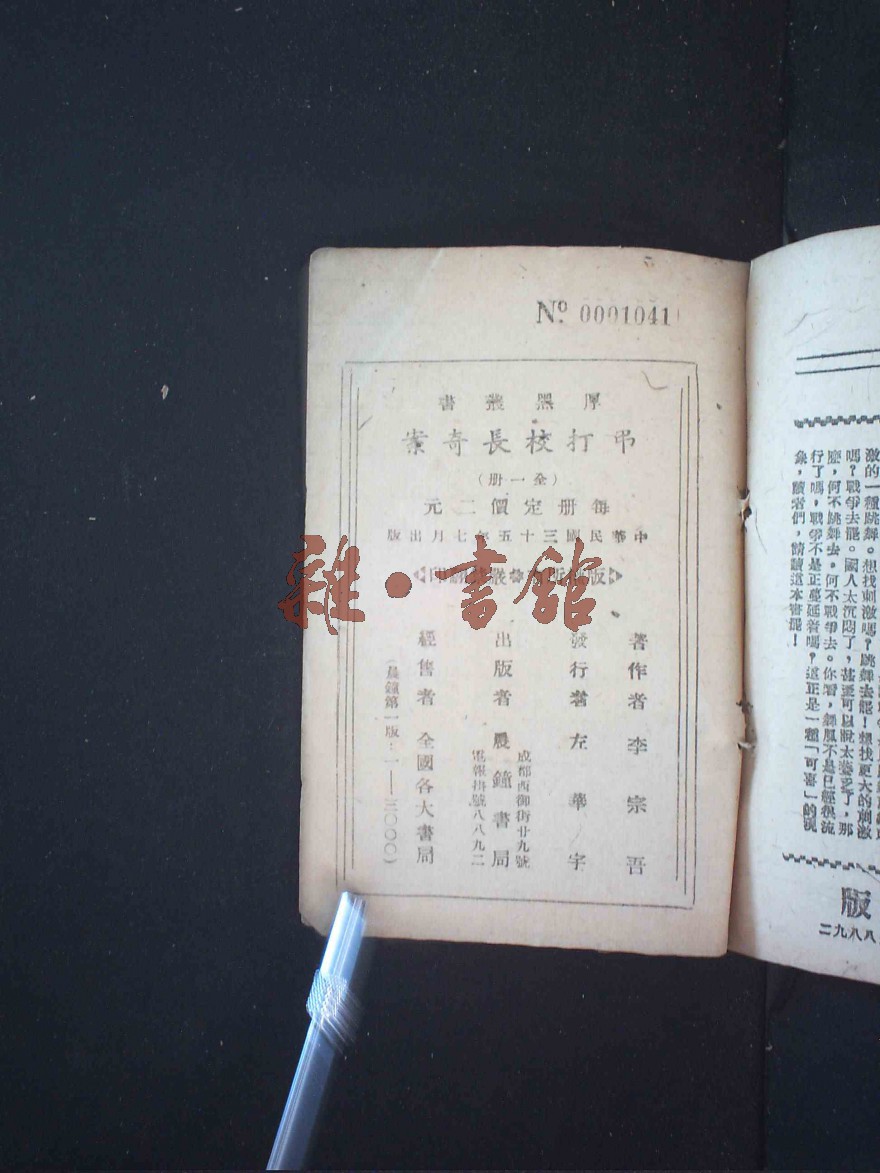 No 0001041
厚黑叢書
弔打校長奇案
(全一册)
每册定價二元
中華民國三十五年七月出版
著作者 李宗吾
發行者 左華宇
出版者 晨鐘書局
成都西御街廿九號
電報掛號八八九二
經售者 全國各大書局
(晨鐘第一版:一——三〇〇〇)
雜·書館
激的一種跳舞。想找刺激嗎?跳舞去罷!想找更大的刺激
嗎?戰爭去罷。國人太沉悶了,甚至可以說太萎乏了,那
麽,何不跳舞去,何不戰爭去。你看,舞風不是已經很流
行了嗎,戰爭不是正蔓延着嗎?這正是一種「可喜」的現
象,讀者們,請讀這本書罷!
版
二九八八